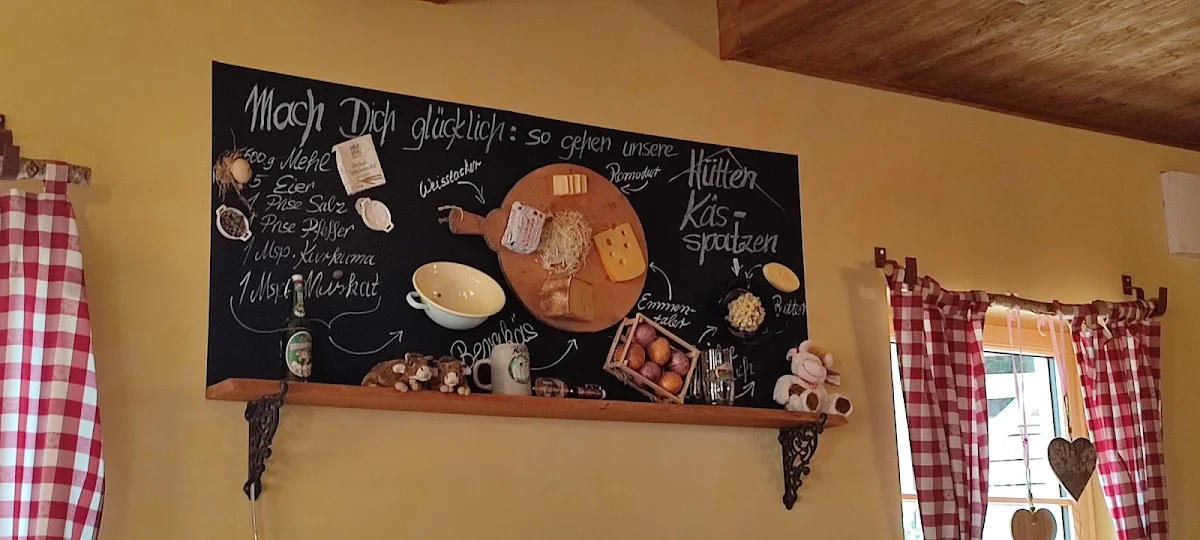 Mach Dich glücklich: so gehen unsere
Hütten
Käs-
spatzen
500g Mehl
5 Eier
1 Prise Salz
1 Prise Pfeffer
1 Msp. Kurkuma
1 Msp. Muskat
Weisslacker
Romadur
Emmen-
taler
Bergkäs
Butter